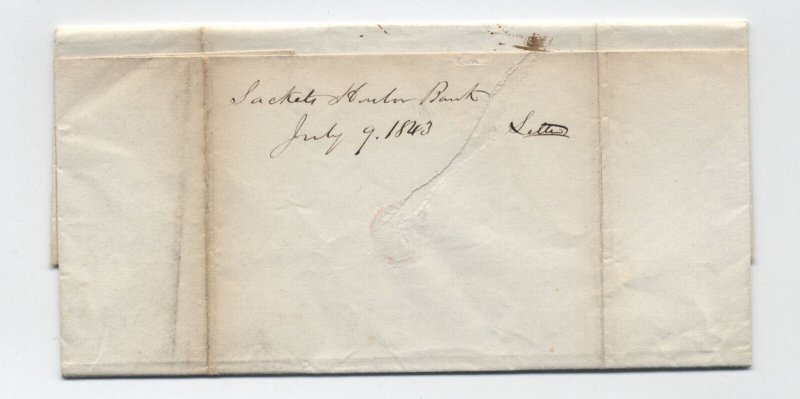 Sackets Harbor Bank
July 9. 1843 Letter